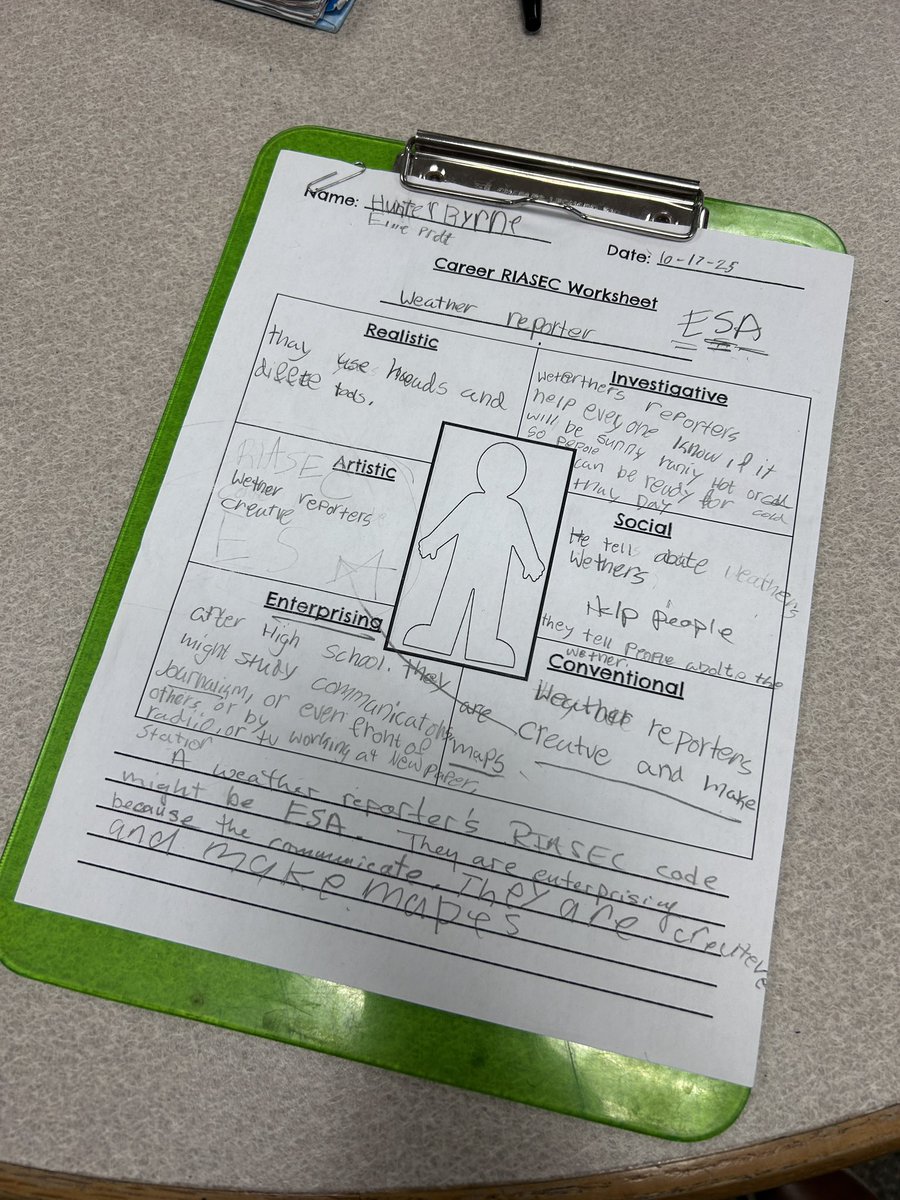 Name: Hunter Byrne
Date: 10-17-25
Career RIASEC Worksheet
Weather reporter
ESA
Realistic
thay use hands and
tools.
Investigative
reporters
help every one know if it
will be sunny rainy Hot or cold
so pepole can be ready for cold
thay Day
Artistic
RIASEC
Wether reporters
creative
ES
Social
He tells aboute weathers
Wethers
Help people
they tell people aboute the
wether.
Enterprising
after High
school. They are
might study communications
Journalism, or even front of
others, or by
radio, or tv working at Newpaper,
Station
Conventional
Weather reporters
Creatve and make
maps
A weather reporter's RIASEC code
might be ESA. They are enterprising
because the communicate. They are creuteve
and make mapes